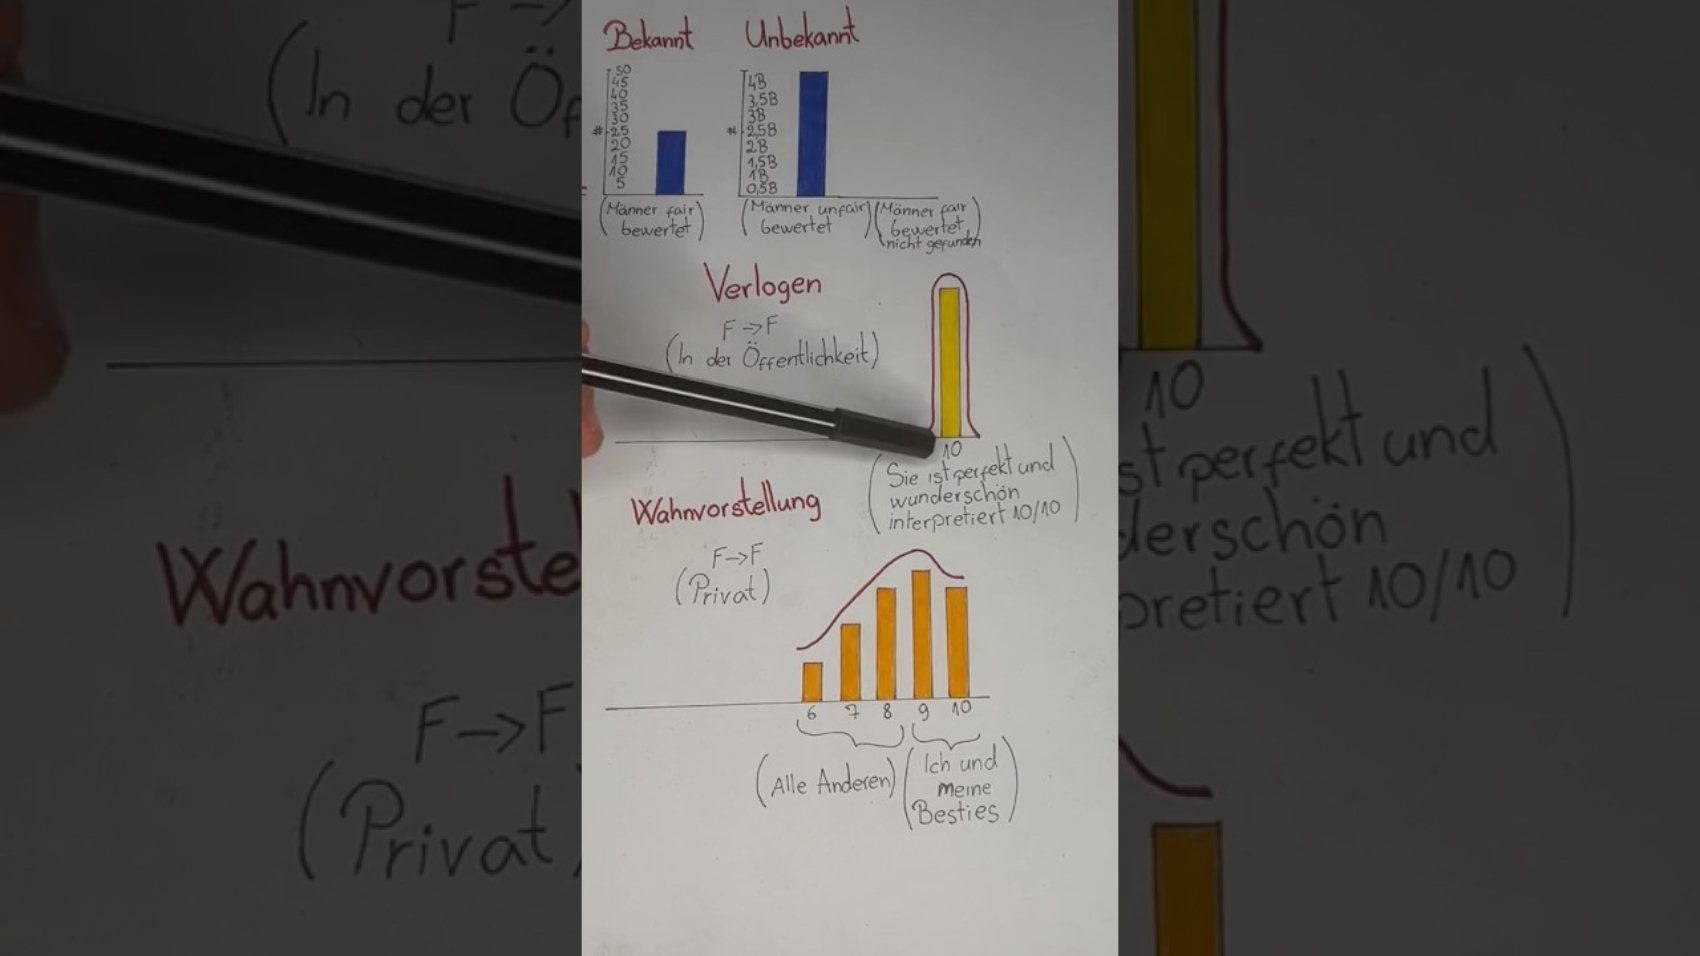 Bekannt
Unbekannt
50
45
40
35
30
#25
20
15
10
5
4B
3,5B
3B
# 2,5B
2B
1,5B
1B
0,5B
(Männer fair
bewertet)
(Männer unfair
bewertet)
(Männer fair
bewertet
nicht gefunden)
Verlogen
F->F
(In der Öffentlichkeit)
10
(Sie ist perfekt und
wunderschön
interpretiert 10/10)
Wahnvorstellung
F->F
(Privat)
6 7 8 9 10
(Alle Anderen)
(Ich und
meine
Besties)